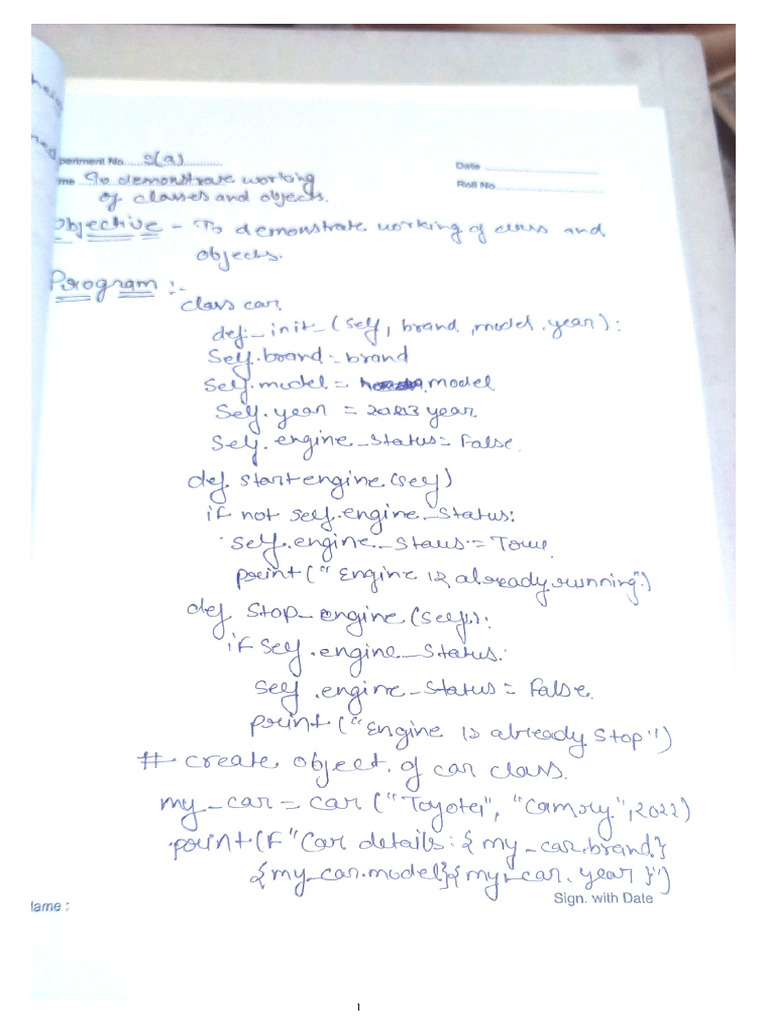 periment No. 9(a)
Date
me To demonstrate working
Roll No.
of classes and objects.
Objective - To demonstrate working of class and
objects.
Program :-
class car
def _init_(self, brand, model, year):
Self.brand = brand
Self.model = model
Self.year = year
Self.engine_status = False.
def startengine(self)
if not self.engine_status:
self.engine_staus = True
print("Engine is already running")
def Stop_engine(self):
if self.engine_status:
self.engine_status = False.
print("Engine is already stop")
# create object of car class.
my_car = car("Toyota", "Camory", 2022)
print(F"Car details: {my_car.brand}
{my_car.model}{my_car.year}")
lame :
Sign. with Date
1